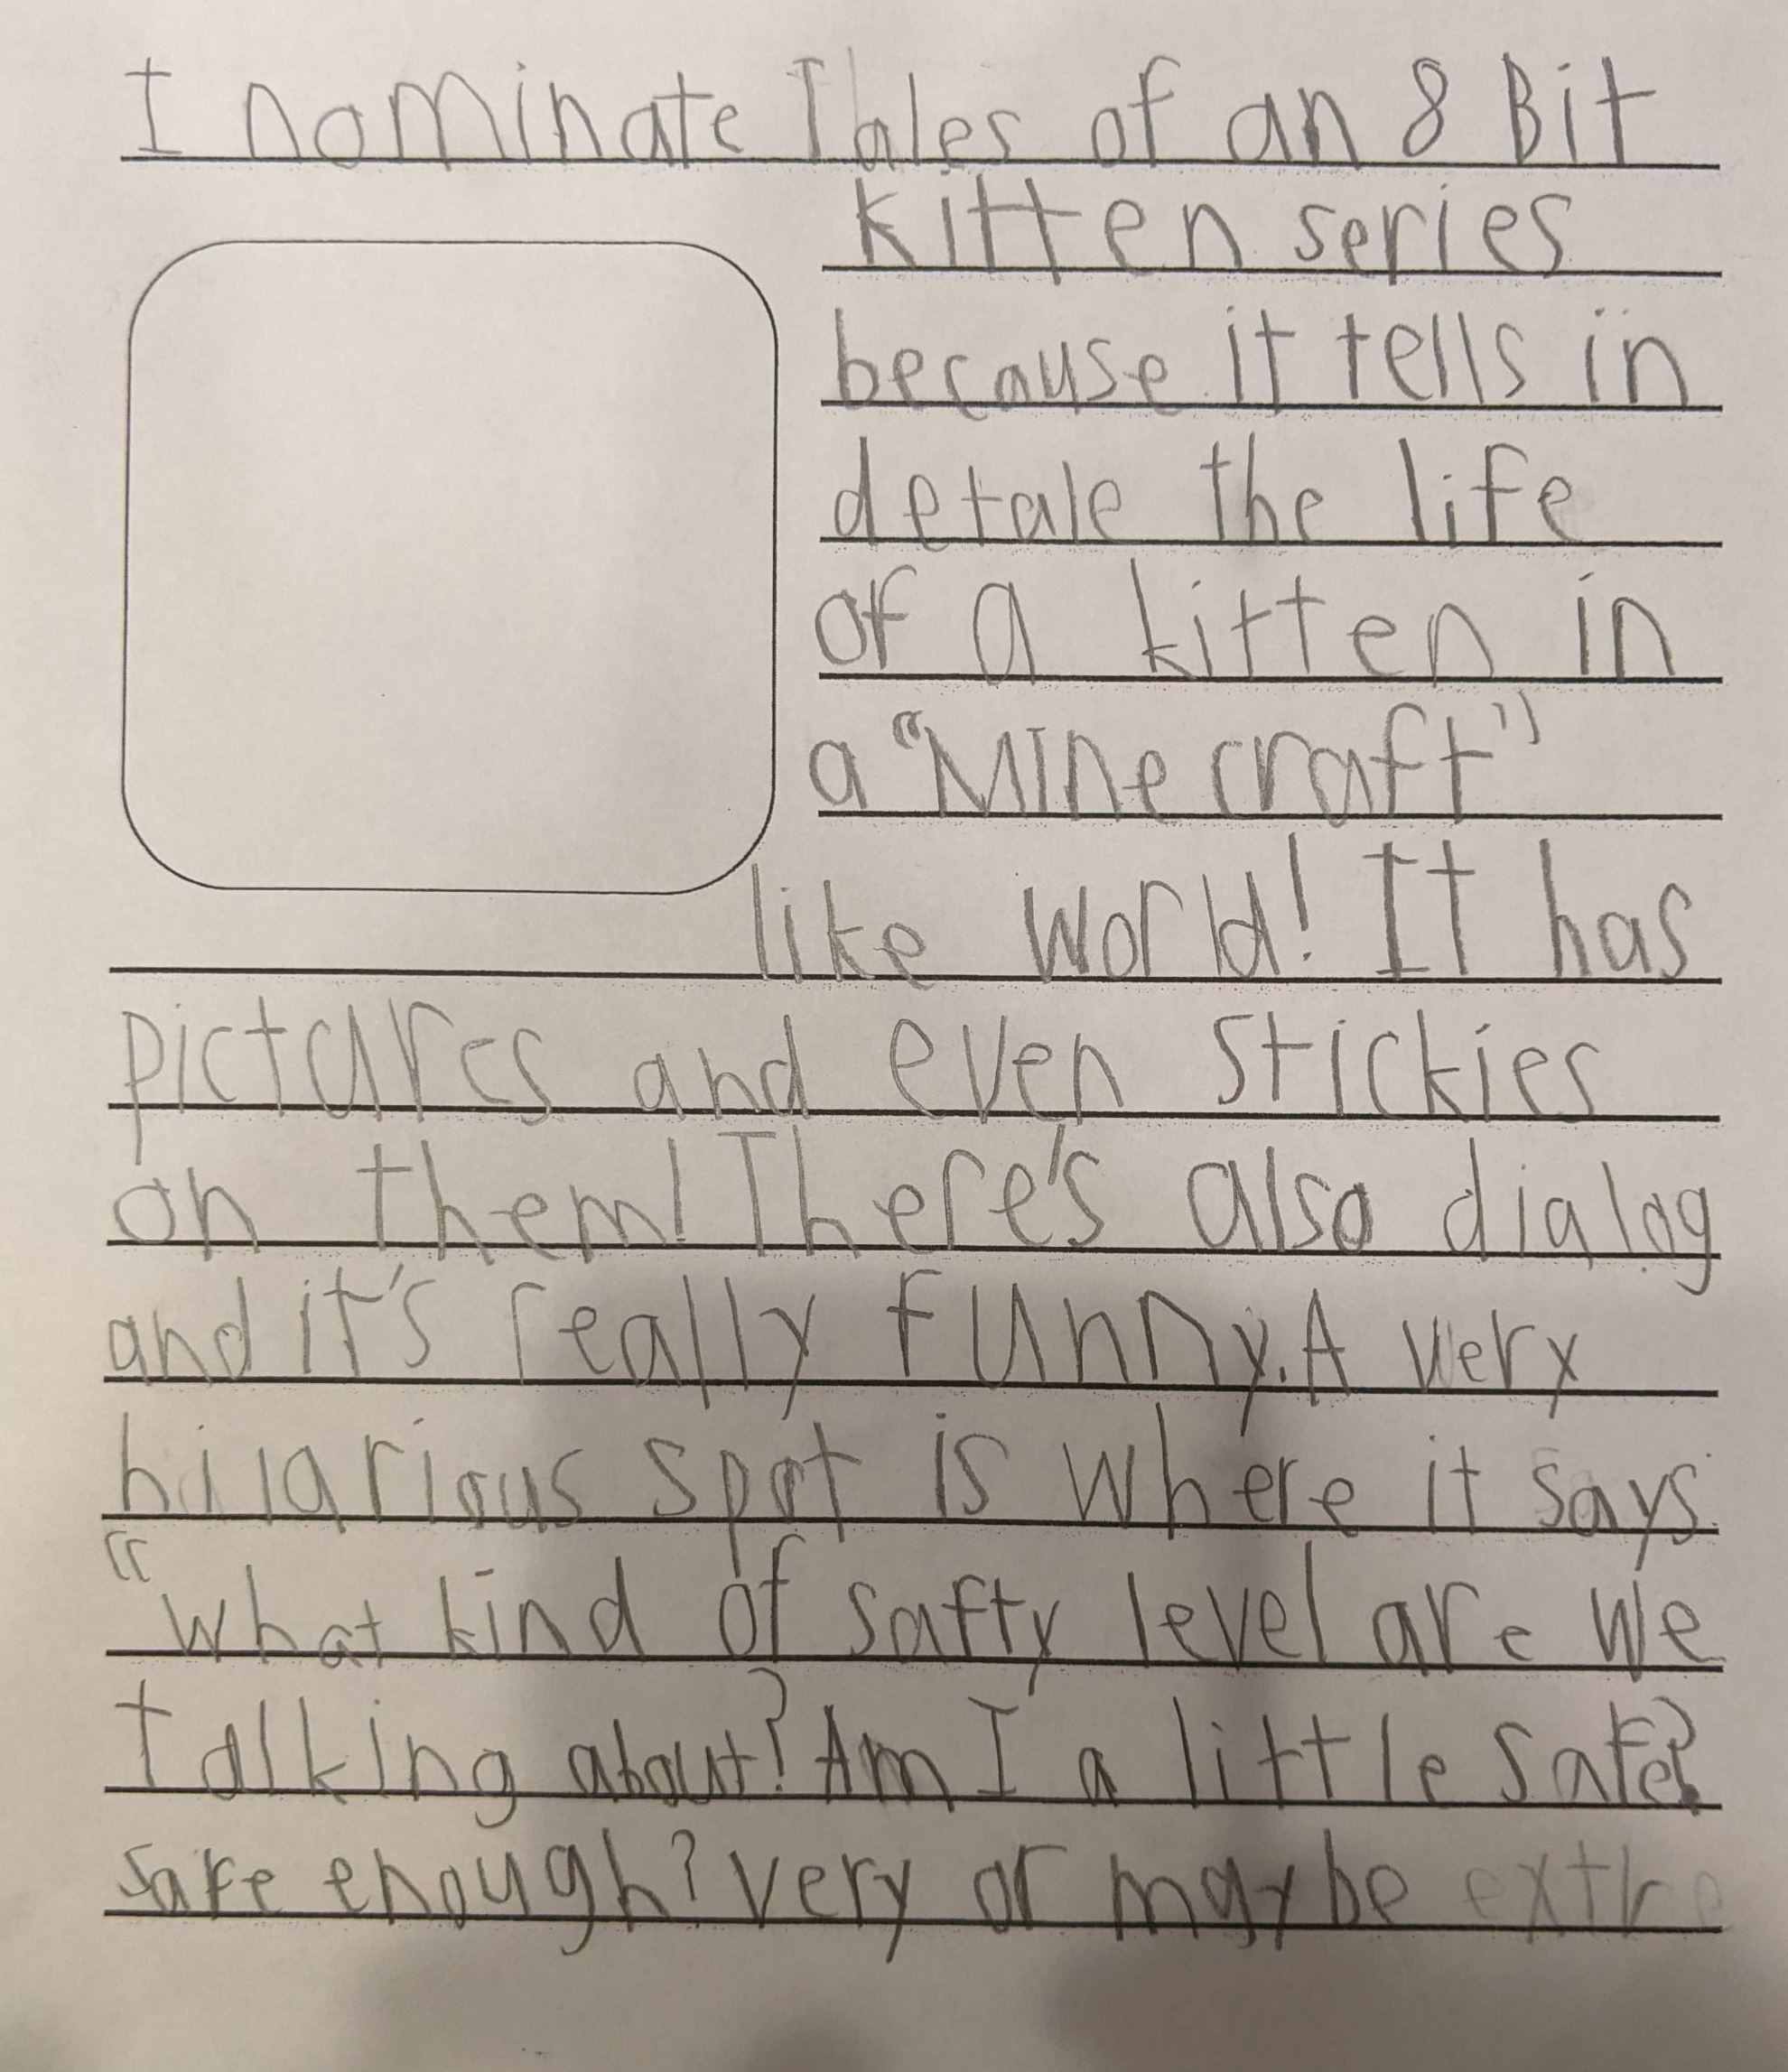 I nominate Tales of an 8 Bit
kitten series
because it tells in
detale the life
of a kitten in
a "Minecraft"
like world! It has
pictures and even stickies
on them! There's also dialog
and it's really funny. A very
hilarious spot is where it says
"what kind of safty level are we
talking about? Am I a little safe?
safe enough? very or maybe extre